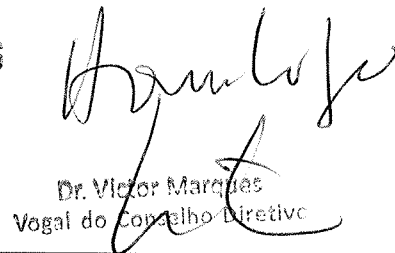 Homologo
Dr. Victor Marques
Vogal do Conselho Diretivo